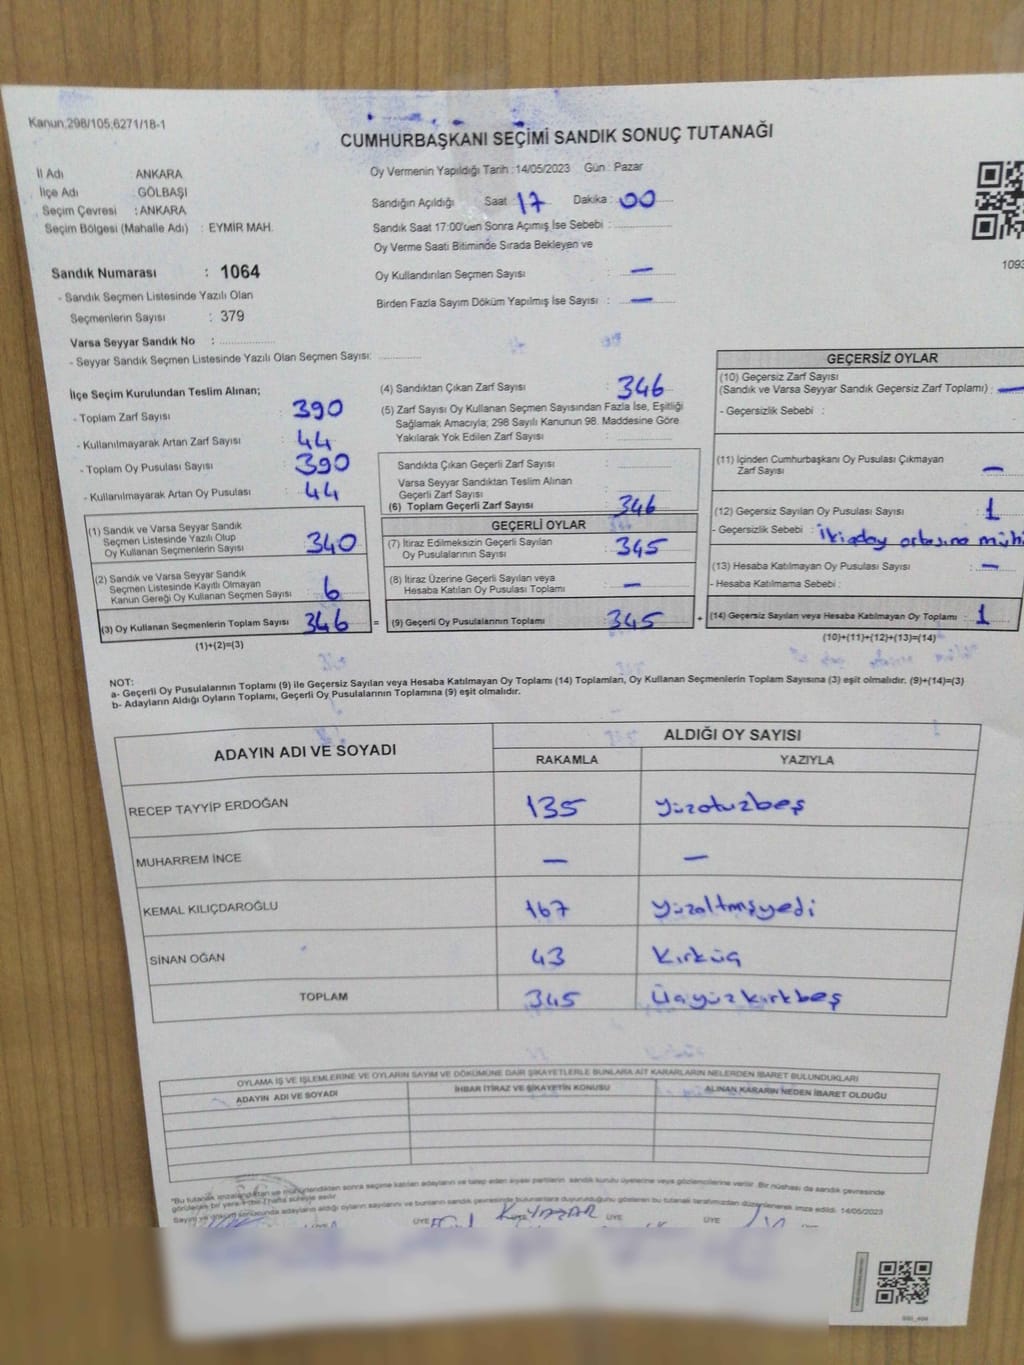 Kanun,298/105,6271/18-1
CUMHURBAŞKANI SEÇİMİ SANDIK SONUÇ TUTANAĞI
İl Adı ANKARA
İlçe Adı : GÖLBAŞI
Seçim Çevresi : ANKARA
Seçim Bölgesi (Mahalle Adı) : EYMİR MAH.
Sandık Numarası : 1064
- Sandık Seçmen Listesinde Yazılı Olan
Seçmenlerin Sayısı : 379
Varsa Seyyar Sandık No :
- Seyyar Sandık Seçmen Listesinde Yazılı Olan Seçmen Sayısı:
Oy Vermenin Yapıldığı Tarih : 14/05/2023 Gün : Pazar
Sandığın Açıldığı Saat : 17 Dakika : 00
Sandık Saat 17:00'den Sonra Açımış İse Sebebi :
Oy Verme Saati Bitiminde Sırada Bekleyen ve
Oy Kullandırılan Seçmen Sayısı : —
Birden Fazla Sayım Döküm Yapılmış İse Sayısı : —
1093
İlçe Seçim Kurulundan Teslim Alınan;
- Toplam Zarf Sayısı : 390
- Kullanılmayarak Artan Zarf Sayısı : 44
- Toplam Oy Pusulası Sayısı : 390
- Kullanılmayarak Artan Oy Pusulası : 44
(1) Sandık ve Varsa Seyyar Sandık
Seçmen Listesinde Yazılı Olup
Oy Kullanan Seçmenlerin Sayısı : 340
(2) Sandık ve Varsa Seyyar Sandık
Seçmen Listesinde Kayıtlı Olmayan
Kanun Gereği Oy Kullanan Seçmen Sayısı : 6
(3) Oy Kullanan Seçmenlerin Toplam Sayısı : 346 =
(1)+(2)=(3)
(4) Sandıktan Çıkan Zarf Sayısı : 346
(5) Zarf Sayısı Oy Kullanan Seçmen Sayısından Fazla İse, Eşitliği
Sağlamak Amacıyla; 298 Sayılı Kanunun 98. Maddesine Göre
Yakılarak Yok Edilen Zarf Sayısı :
Sandıkta Çıkan Geçerli Zarf Sayısı :
Varsa Seyyar Sandıktan Teslim Alınan
Geçerli Zarf Sayısı :
(6) Toplam Geçerli Zarf Sayısı : 346
GEÇERLİ OYLAR
(7) İtiraz Edilmeksizin Geçerli Sayılan
Oy Pusulalarının Sayısı : 345
(8) İtiraz Üzerine Geçerli Sayılan veya
Hesaba Katılan Oy Pusulası Toplamı : —
(9) Geçerli Oy Pusulalarının Toplamı : 345 +
GEÇERSİZ OYLAR
(10) Geçersiz Zarf Sayısı
(Sandık ve Varsa Seyyar Sandık Geçersiz Zarf Toplamı) : —
- Geçersizlik Sebebi :
(11) İçinden Cumhurbaşkanı Oy Pusulası Çıkmayan
Zarf Sayısı : —
(12) Geçersiz Sayılan Oy Pusulası Sayısı : 1
- Geçersizlik Sebebi : İki aday ortasına müh
(13) Hesaba Katılmayan Oy Pusulası Sayısı : —
- Hesaba Katılmama Sebebi :
(14) Geçersiz Sayılan veya Hesaba Katılmayan Oy Toplamı : 1
(10)+(11)+(12)+(13)=(14)
NOT:
a- Geçerli Oy Pusulalarının Toplamı (9) ile Geçersiz Sayılan veya Hesaba Katılmayan Oy Toplamı (14) Toplamları, Oy Kullanan Seçmenlerin Toplam Sayısına (3) eşit olmalıdır. (9)+(14)=(3)
b- Adayların Aldığı Oyların Toplamı, Geçerli Oy Pusulalarının Toplamına (9) eşit olmalıdır.
ADAYIN ADI VE SOYADI ALDIĞI OY SAYISI
RAKAMLA YAZIYLA
RECEP TAYYİP ERDOĞAN 135 Yüzotuzbeş
MUHARREM İNCE — —
KEMAL KILIÇDAROĞLU 167 Yüzaltmışyedi
SİNAN OĞAN 43 Kırküç
TOPLAM 345 Üçyüzkırkbeş
OYLAMA İŞ VE İŞLEMLERİNE VE OYLARIN SAYIM VE DÖKÜMÜNE DAİR ŞİKAYETLERLE BUNLARA AİT KARARLARIN NELERDEN İBARET BULUNDUKLARI
ADAYIN ADI VE SOYADI İHBAR İTİRAZ VE ŞİKAYETİN KONUSU ALINAN KARARIN NEDEN İBARET OLDUĞU
*Bu tutanak imzalandıktan ve mühürlendikten sonra seçime katılan adayların ve talep eden siyasi partilerin sandık kurulu üyelerine veya gözlemcilerine verilir. Bir nüshası da sandık çevresinde
görülecek bir yere 1 (bir) hafta süreyle asılır
Sayım ve döküm sonucunda adayların aldığı oyların sayılarını ve bunların sandık çevresinde bulunanlara duyurulduğunu gösteren bu tutanak tarafımızdan düzenlenerek imza edildi. 14/05/2023
ÜYE ÜYE ÜYE ÜYE